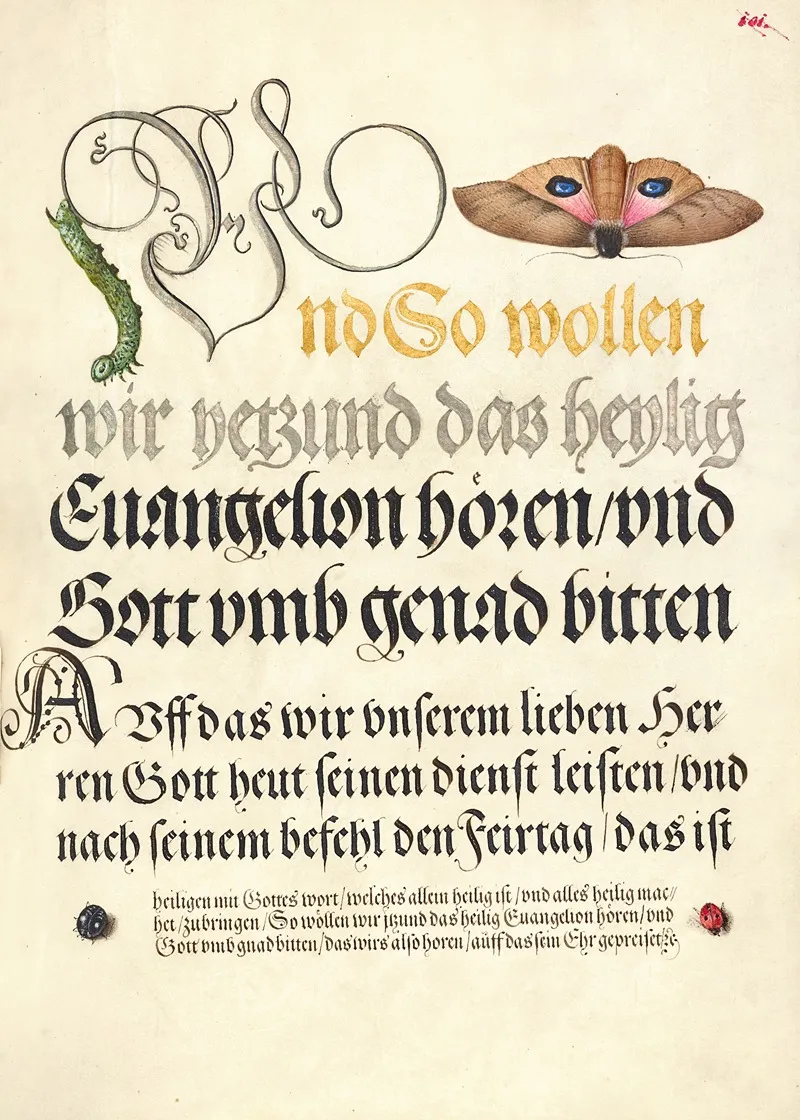 101.
Und So wollen
wir yetzund das heylig
Euangelion hören/vnd
Gott vmb genad bitten
AVff das wir vnserem lieben Her-
ren Gott heut seinen dienst leisten/vnd
nach seinem befehl den Feirtag/das ist
heiligen mit Gottes wort/welches allein heilig ist/vnd alles heilig mac//
het/zubringen/So wöllen wir jtzund das heilig Euangelion hören/vnd
Gott vmb gnad bitten/das wirs also horen/auff das sein Ehr gepreiset/